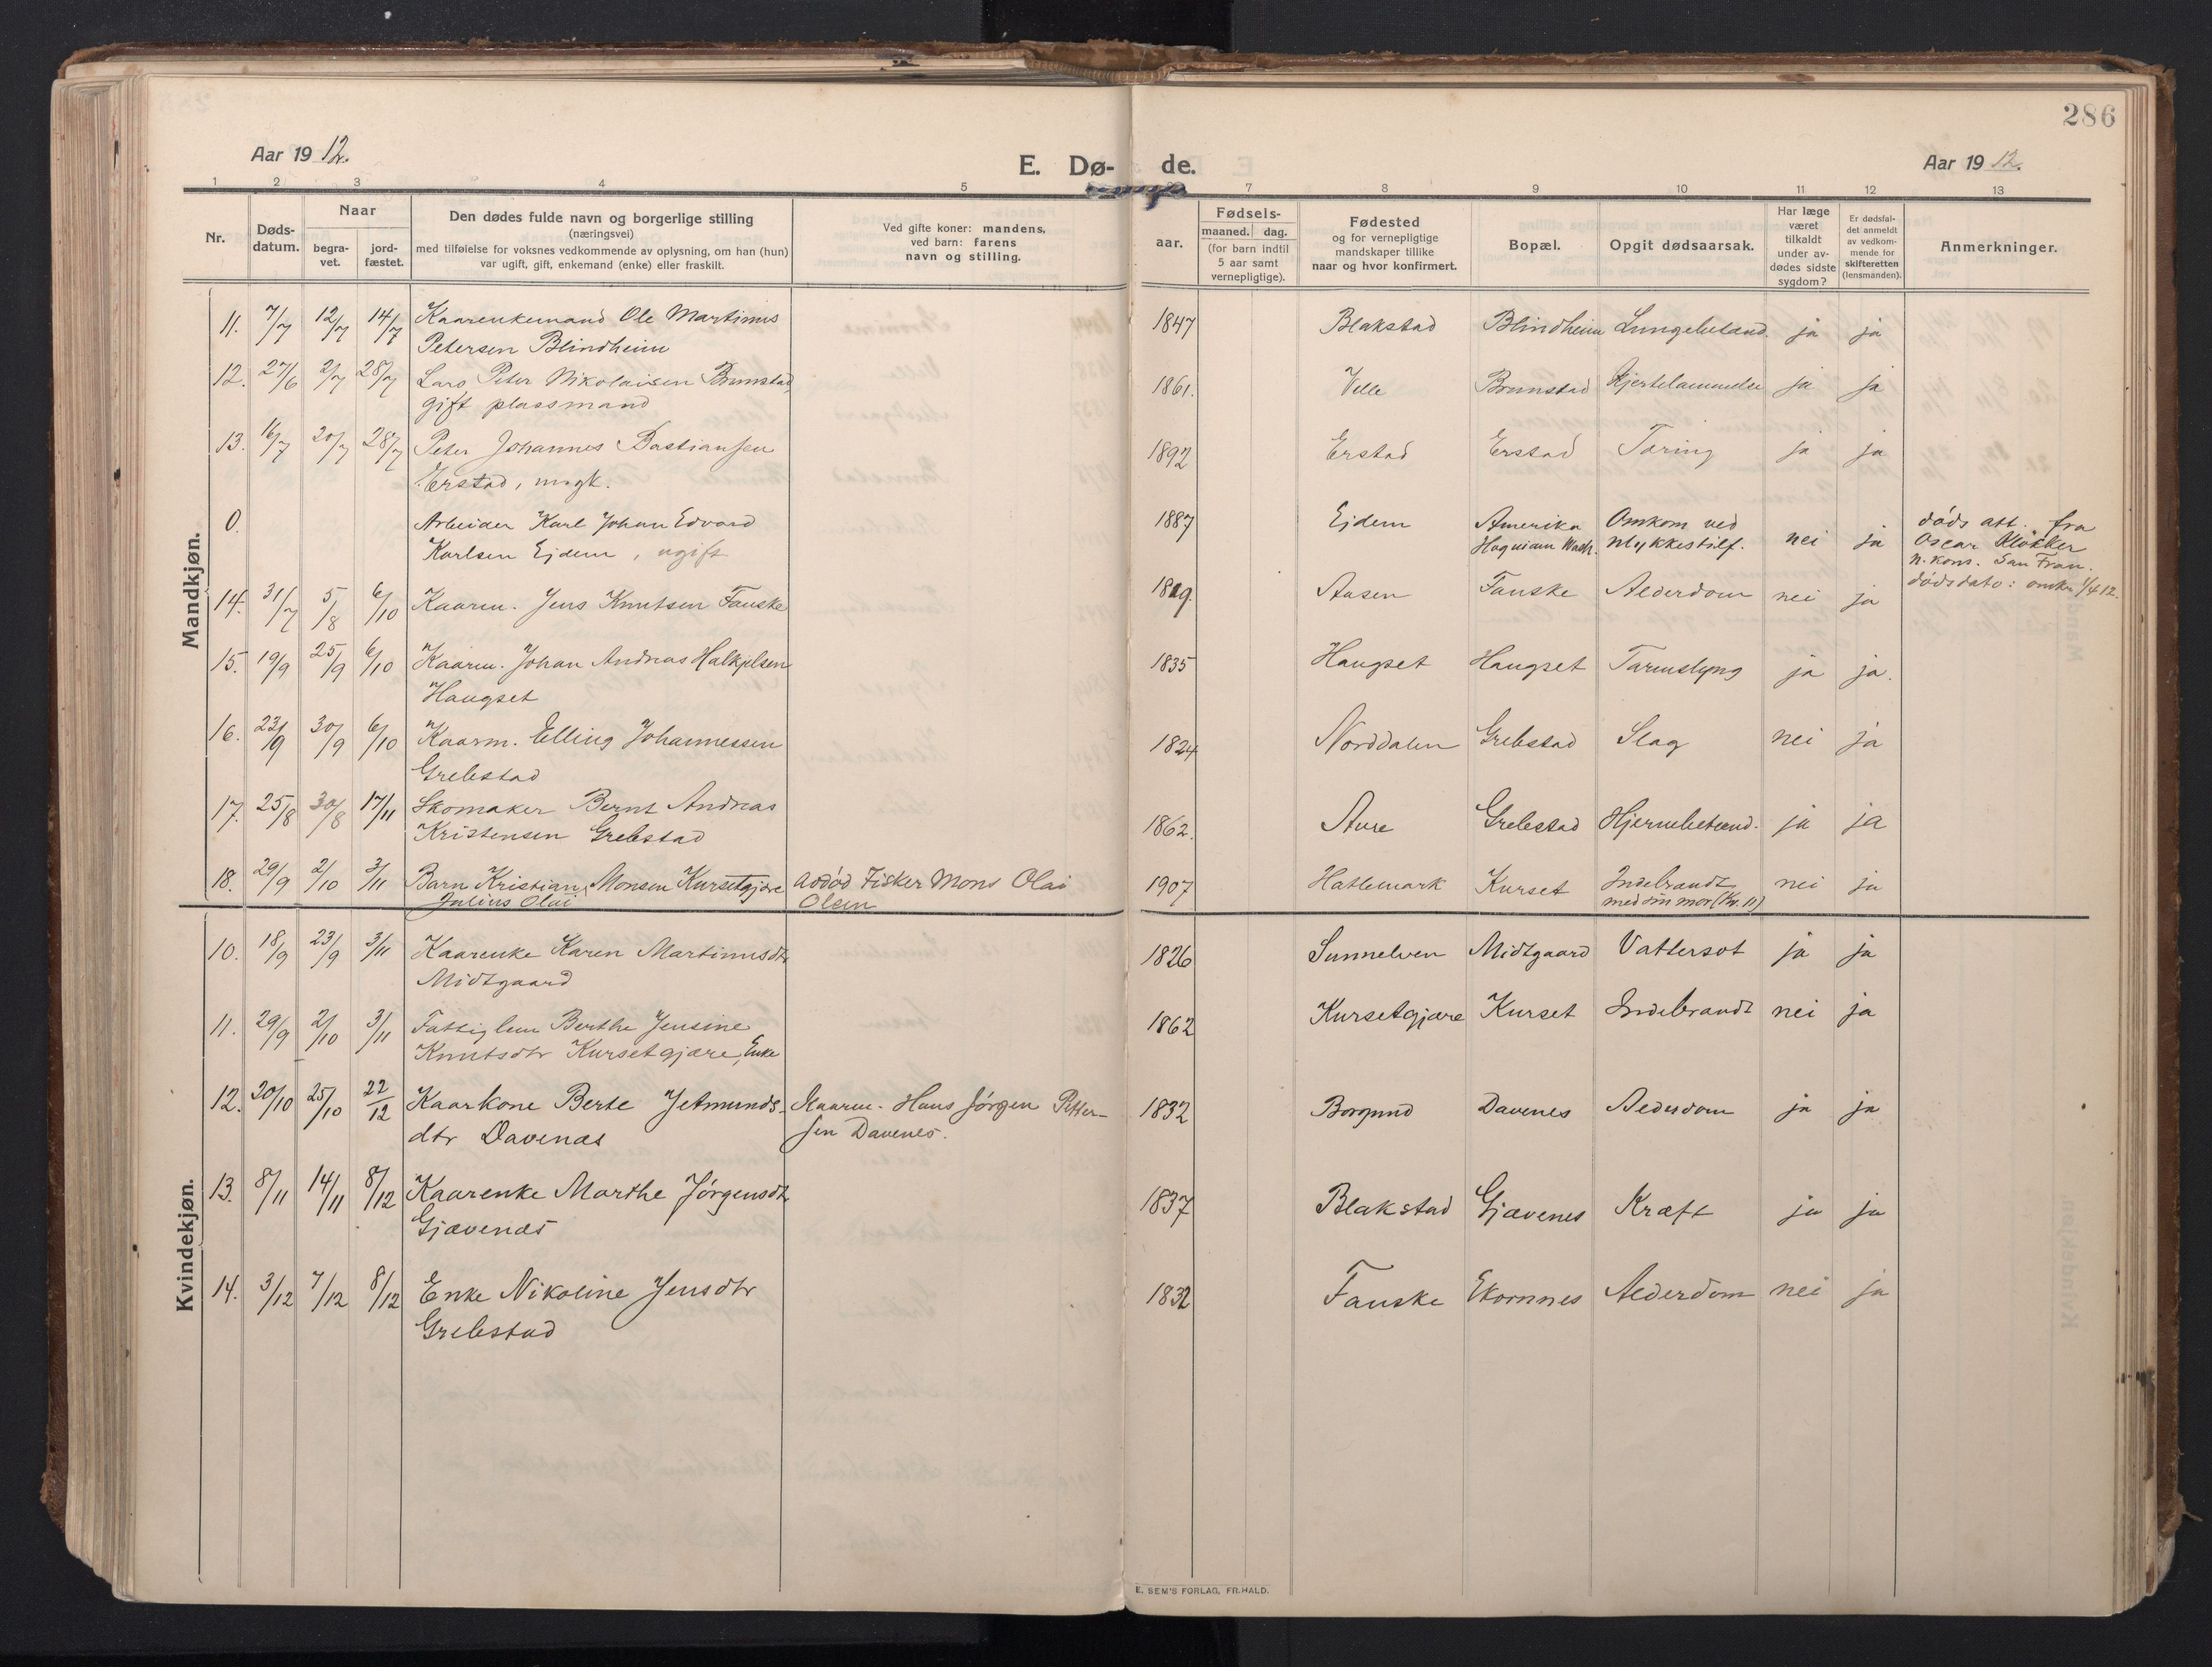 286
Aar 1912.
E. Dø- de.
Aar 1912.
1 2 3 4 5 7 8 9 10 11 12 13
Nr.
Døds-
datum.
Naar
begra-
vet.
jord-
fæstet.
Den dødes fulde navn og borgerlige stilling
(næringsvei)
med tilføielse for voksnes vedkommende av oplysning, om han (hun)
var ugift, gift, enkemand (enke) eller fraskilt.
Ved gifte koner: mandens,
ved barn: farens
navn og stilling.
aar.
Fødsels-
maaned. dag.
(for barn indtil
5 aar samt
vernepligtige).
Fødested
og for vernepligtige
mandskaper tillike
naar og hvor konfirmert.
Bopæl.
Opgit dødsaarsak.
Har læge
været
tilkaldt
under av-
dødes sidste
sygdom?
Er dødsfal-
det anmeldt
av vedkom-
mende for
skifteretten
(lensmanden).
Anmerkninger.
Mandkjøn.
11. 7/7 12/7 14/7 Kaarenkemand Ole Martinus 1847 Blakstad Blindheim Lungebetænd. ja ja
Petersen Blindheim
12. 27/6 2/7 28/7 Lars Peter Nikolaisen Brunstad, 1861. Velle Brunstad Hjertelammelse ja ja
gift plassmand
13. 16/7 20/7 28/7 Peter Johannes Bastiansen 1892 Erstad Erstad Tæring ja ja
Erstad, ungk.
0. Arbeider Karl Johan Edvard 1887 Ejdem Amerika Omkom ved nei ja døds att. fra
Karlsen Ejdem, ugift Hoquiam Wash. ulykkestilf. Oscar Kløkker
n. kons. San Fran.
dødsdato: omkr. 1/4 12.
14. 31/7 5/8 6/10 Kaarm. Jens Knutsen Fauske 1829. Aasen Fauske Alderdom nei ja
15. 19/9 25/9 6/10 Kaarm. Johan Andreas Halkjelsen 1835 Haugset Haugset Tarmslyng ja ja.
Haugset
16. 23/9 30/9 6/10 Kaarm. Elling Johannessen 1824 Norddalen Grebstad Slag nei ja
Grebstad
17. 25/8 30/8 17/11 Skomaker Bernt Andreas 1862. Aure Grebstad Hjernebetænd. ja ja
Kristensen Grebstad
18. 29/9 2/10 3/11 Barn Kristian Monsen Kursetgjære avdød Fisker Mons Olai 1907 Hattemark Kurset Indebrændt nei ja
Julius Olai Olsen med sin mor (Kv. 11)
Kvindekjøn.
10. 18/9 23/9 3/11 Kaarenke Karen Martinusdtr 1826 Sunnelven Midtgaard Vattersot ja ja
Midtgaard
11. 29/9 2/10 3/11 Fattiglem Berthe Jensine 1862 Kursetgjære Kurset Indebrændt nei ja
Knutsdtr Kursetgjære, Enke
12. 20/10 25/10 22/12 Kaarkone Berte Jetmunds- Kaarm. Hans Jørgen Petter- 1832 Borgund Davenes Alderdom ja ja
dtr Davenæs sen Davenes.
13. 8/11 14/11 8/12 Kaarenke Marthe Jørgensdtr 1837 Blakstad Gjævenes Kræft ja ja
Gjævenæs
14. 3/12 7/12 8/12 Enke Nikoline Jensdtr 1832 Fauske Ekornnes Alderdom nei ja
Grebstad
E. SEM'S FORLAG, FR.HALD.